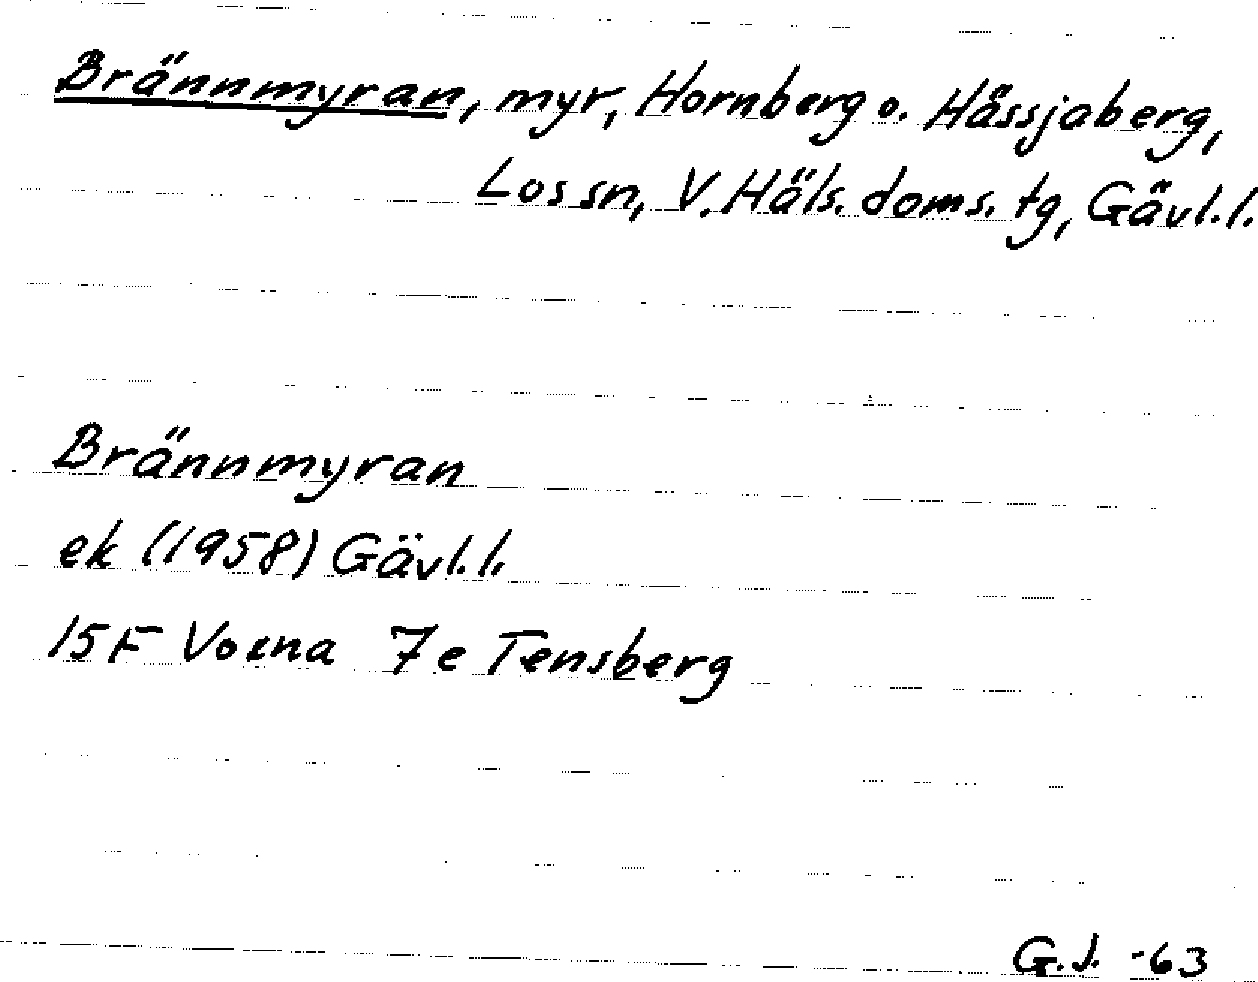 Brännmyran, myr, Hornberg o. Hässjaberg,
Los sn, V. Häls. doms. tg, Gävl.l.
Brännmyran
ek (1958) Gävl.l.
15F Voxna 7e Tensberg
G.J. -63